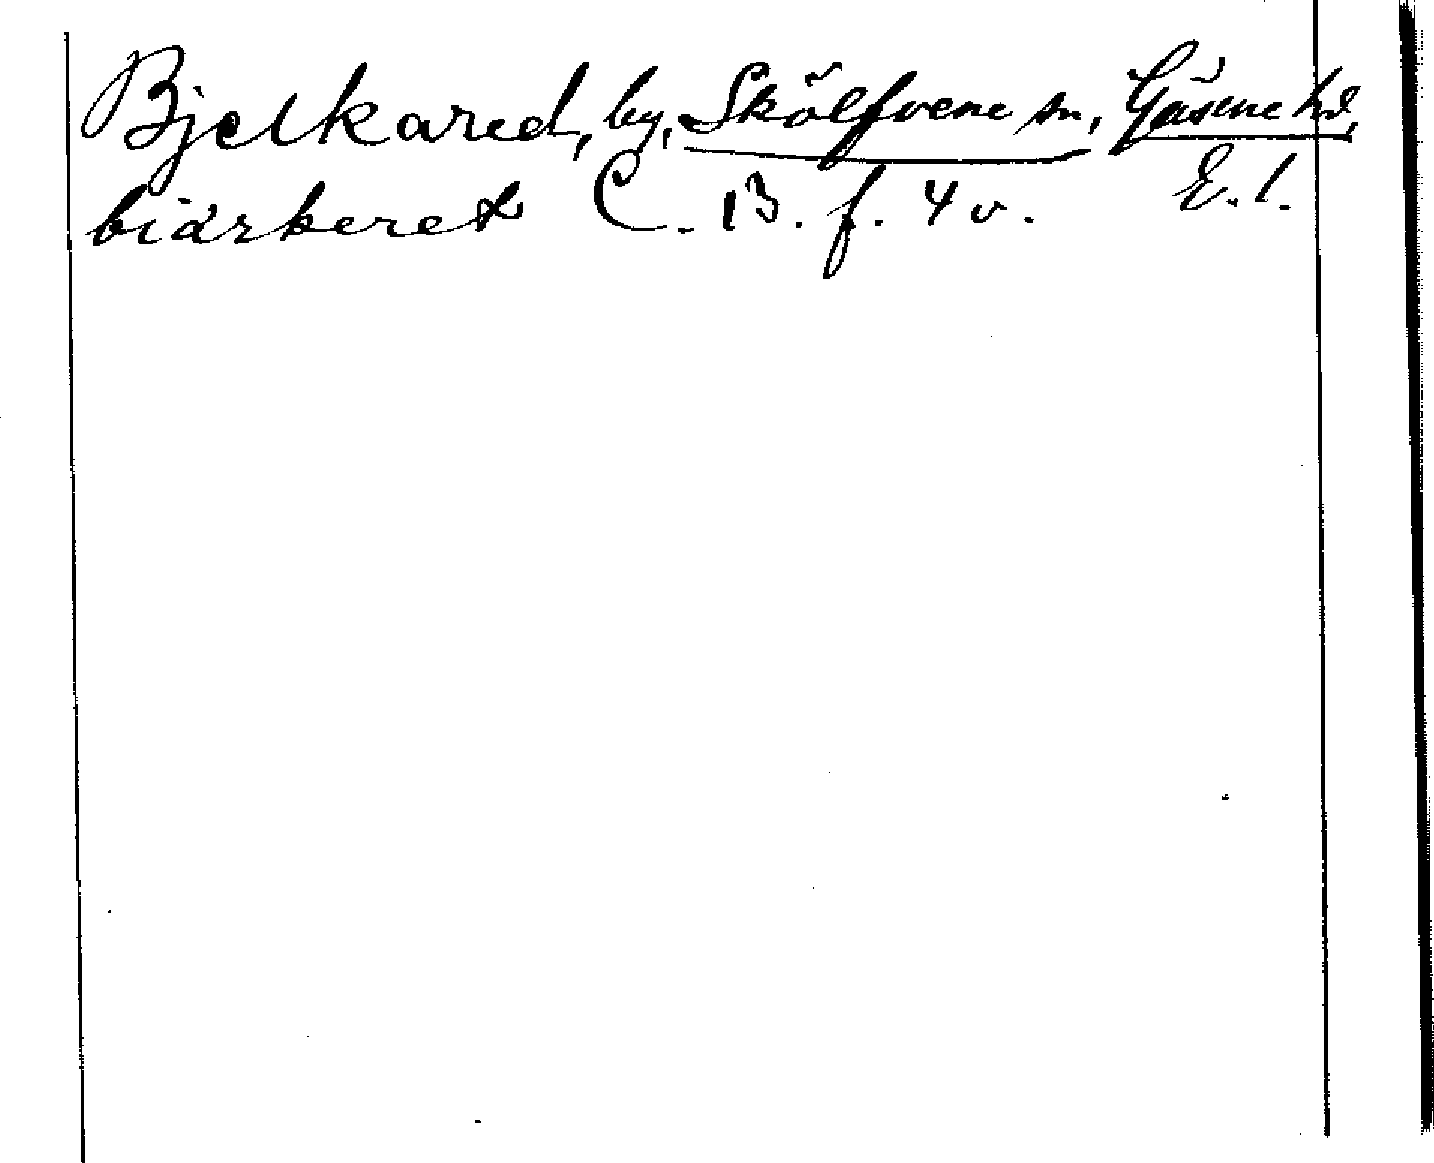 Bjelkared, by, Skölfvene sn, Gäsene hd,
E. l.
biärkeret C. 13. f. 4 v.